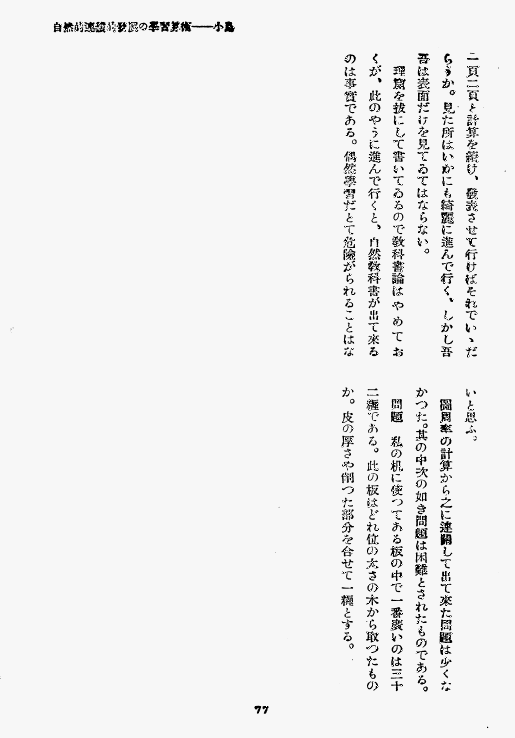 自然的連續的發展の學習算術――小島
二頁三頁と計算を續け、發表させて行けばそれでいゝだ
らうか。見た所はいかにも綺麗に進んで行く、しかし吾
吾は表面だけを見てゐてはならない。
理窟を拔にして書いてゐるので敎科書論はやめてお
くが、此のやうに進んで行くと、自然敎科書が出て來る
のは事實である。偶然學習だとて危險がられることはな
いと思ふ。
圓周率の計算から之に連關して出て來た問題は少くな
かつた。其の中次の如き問題は困難とされたものである。
問題 私の机に使つてある板の中で一番廣いのは三十
二糎である。此の板はどれ位の太さの木から取つたもの
か。皮の厚さや削つた部分を合せて一糎とする。
77